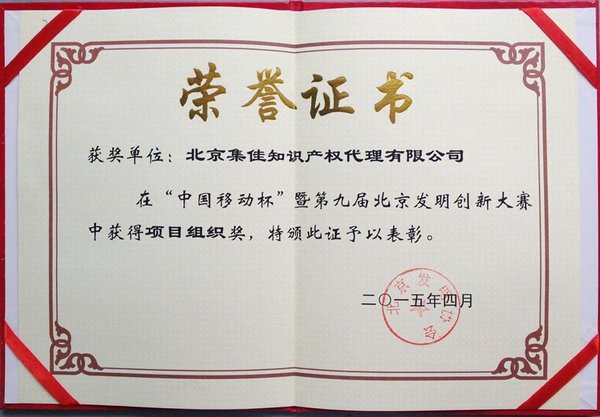 荣誉证书
获奖单位：北京集佳知识产权代理有限公司
在“中国移动杯”暨第九届北京发明创新大赛
中获得项目组织奖，特颁此证予以表彰。
二〇一五年四月
北京发明协会